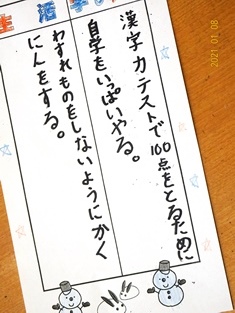 漢字力テストで100点をとるために
自学をいっぱいやる。
わすれものをしないようにかく
にんをする。
生活
2021 01 08